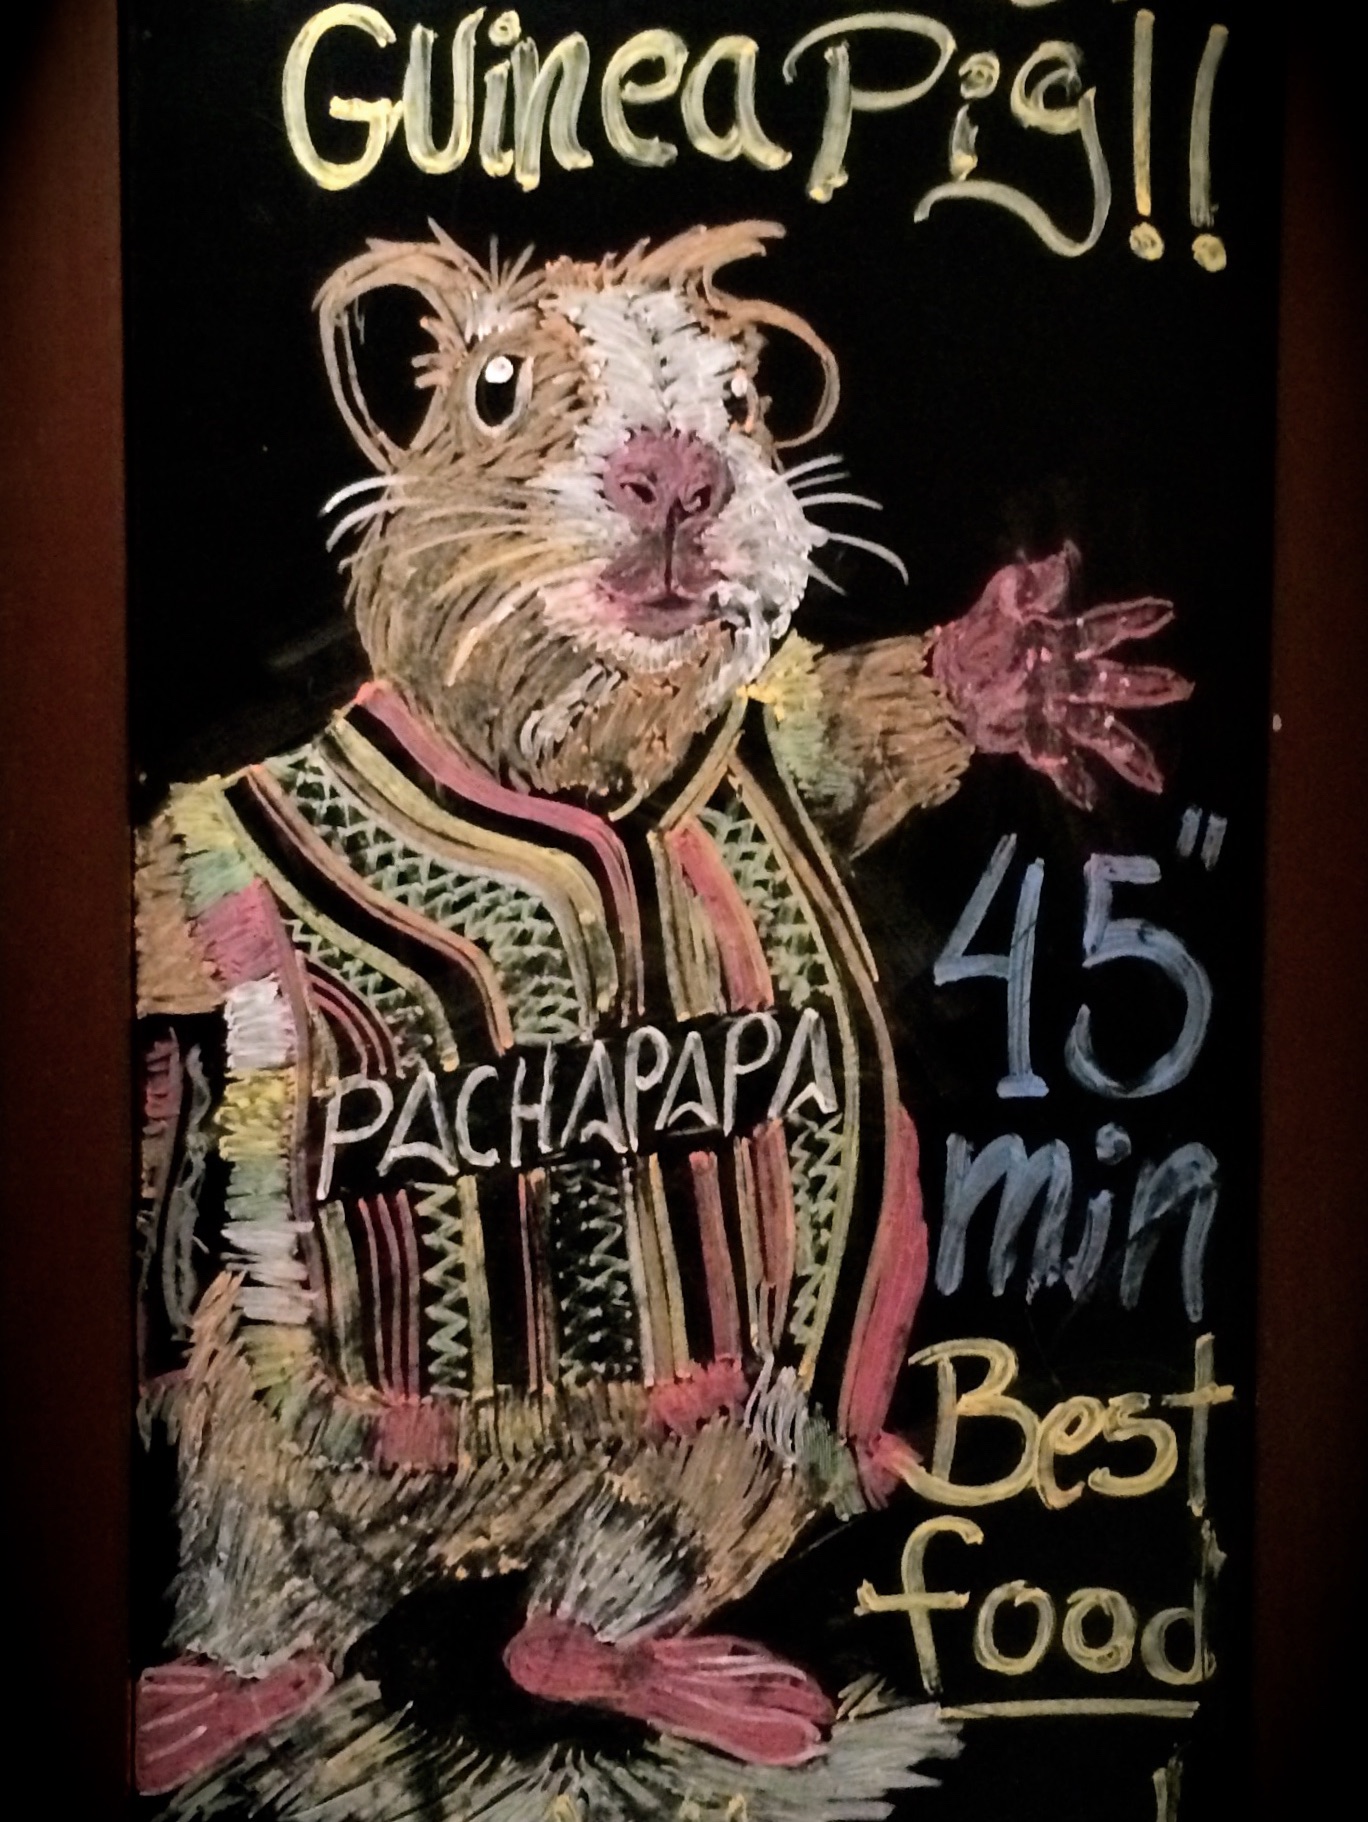 Guinea Pig!!
PACHAPAPA
45"
min
Best
food